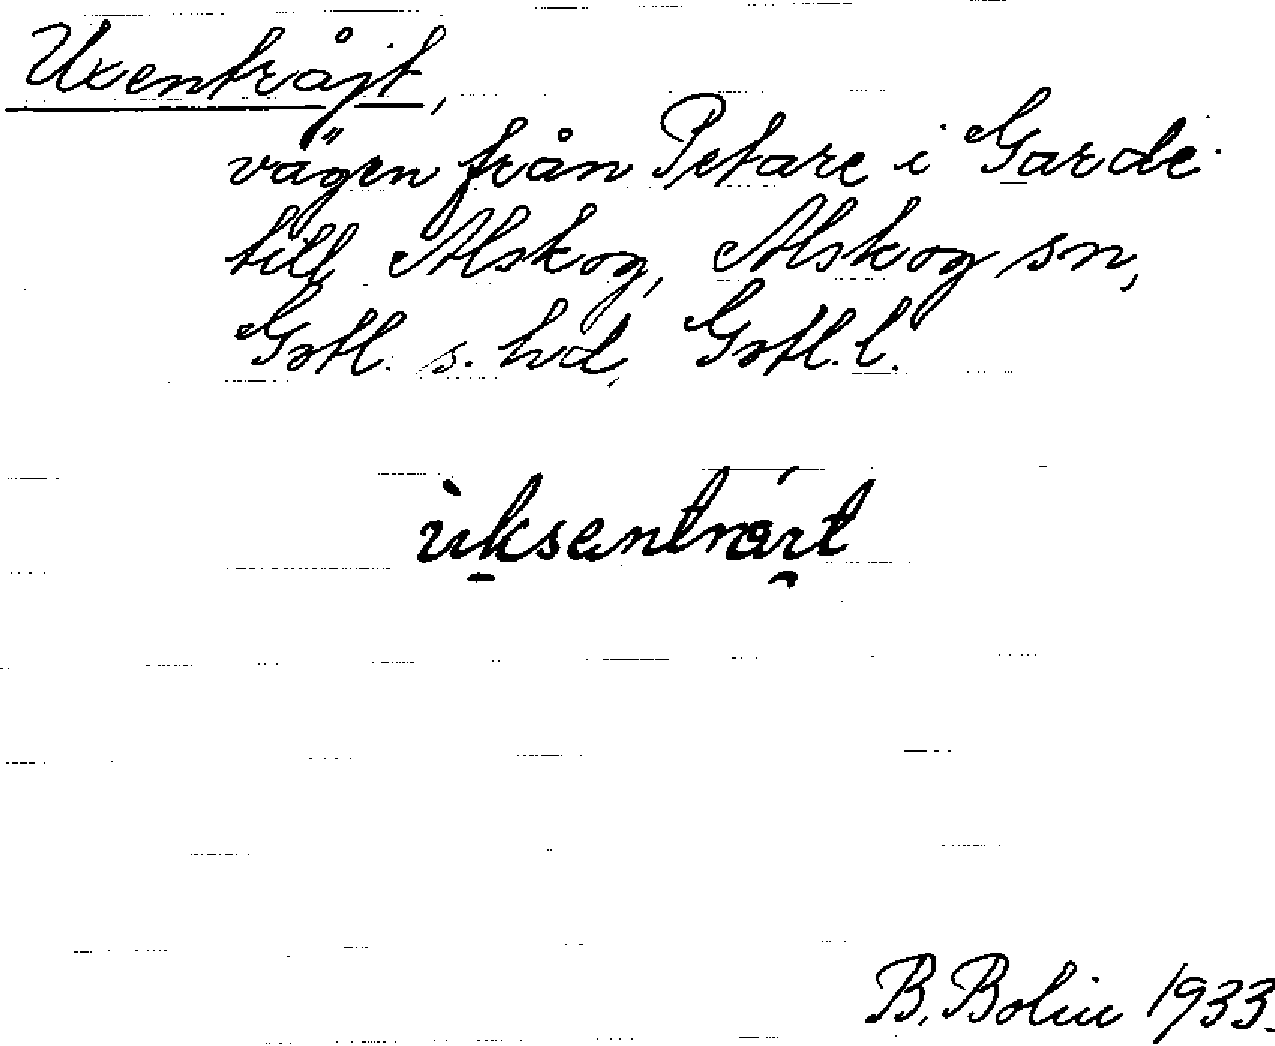 Uxentråjt,
vägen från Petare i Garde
till Alskog, Alskog sn,
Gotl. s. hd, Gotl. l.
B. Bolin 1933.